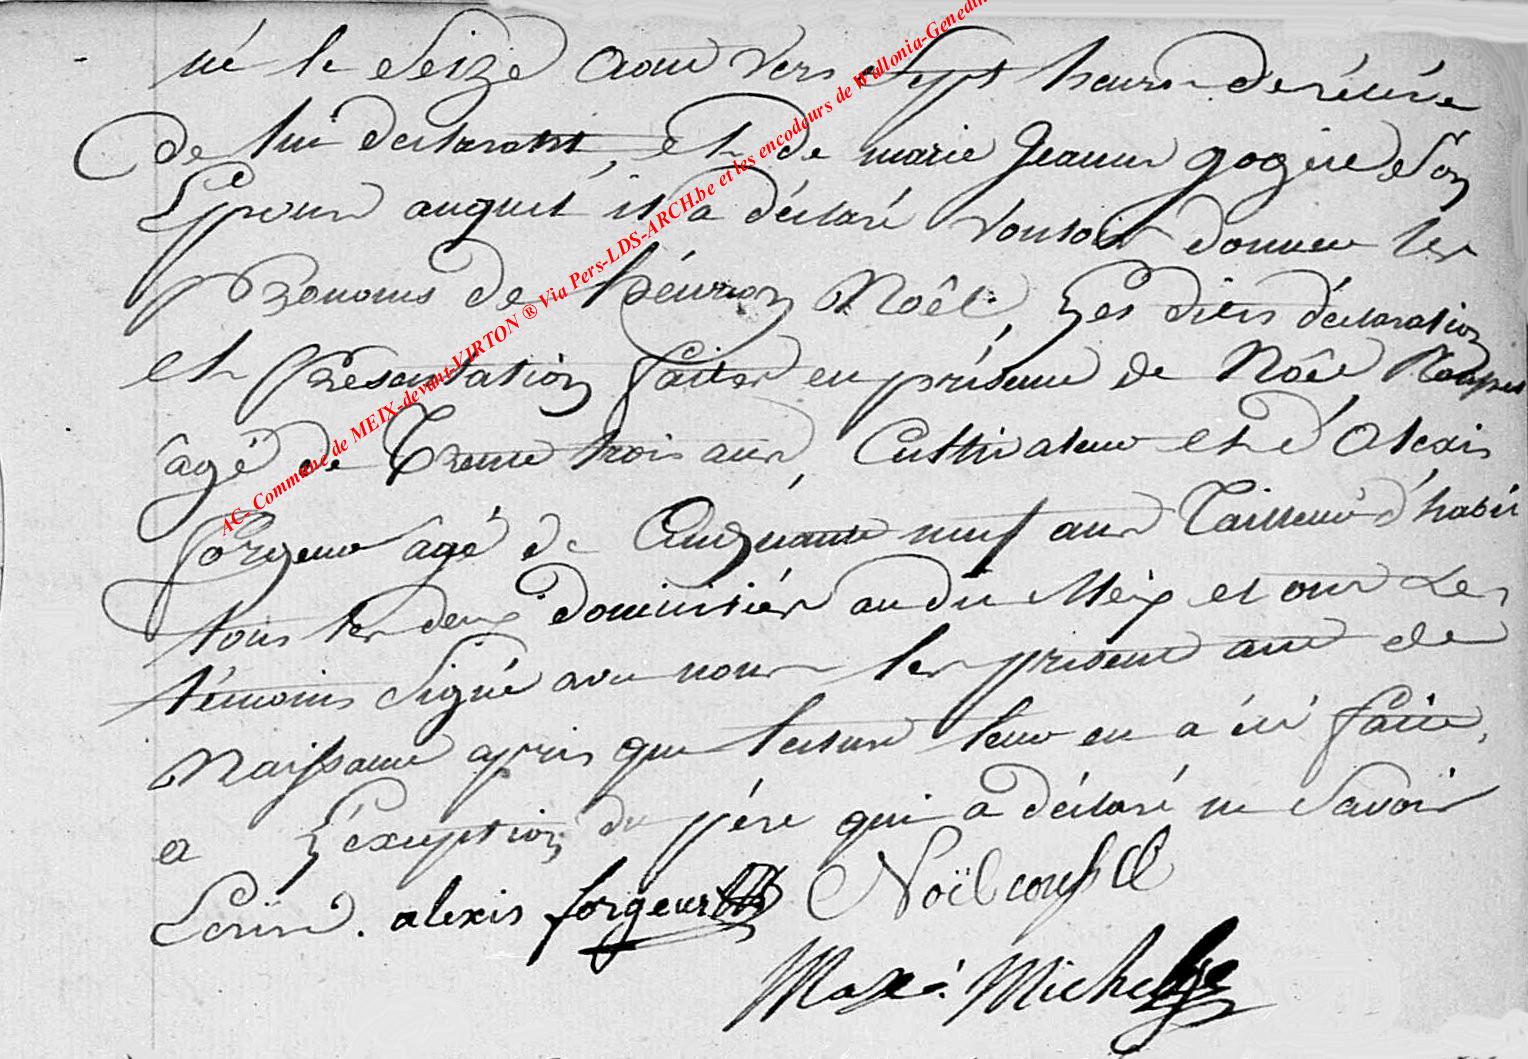 né le Seize aout vers Sept heures de relevée
de lui declarant, et de marie jeanne gogire Son
Epouse auquel il a déclaré vouloir donner les
prenoms de henrion Noêl. Les dites déclaration
et presentation faites en présence de Noêl
agé de Trente trois ans, Cultivateur et d'Alexis
forgeur agé de Cinquante neuf ans Tailleur d'habit
tous les deux domiciliés au dit Meix et ont Les
témoins Signé avec nous les present acte de
Naissance apres que lecture leur en a été faite,
a L'éxception du pére qui a déclaré ne Savoir
Ecrire. alexis forgeur Noël
Maxé. Michel
AC- Commune de MEIX-devant-VIRTON ® Via Pers-LDS-ARCH.be et les encodeurs de Wallonia-Genedin